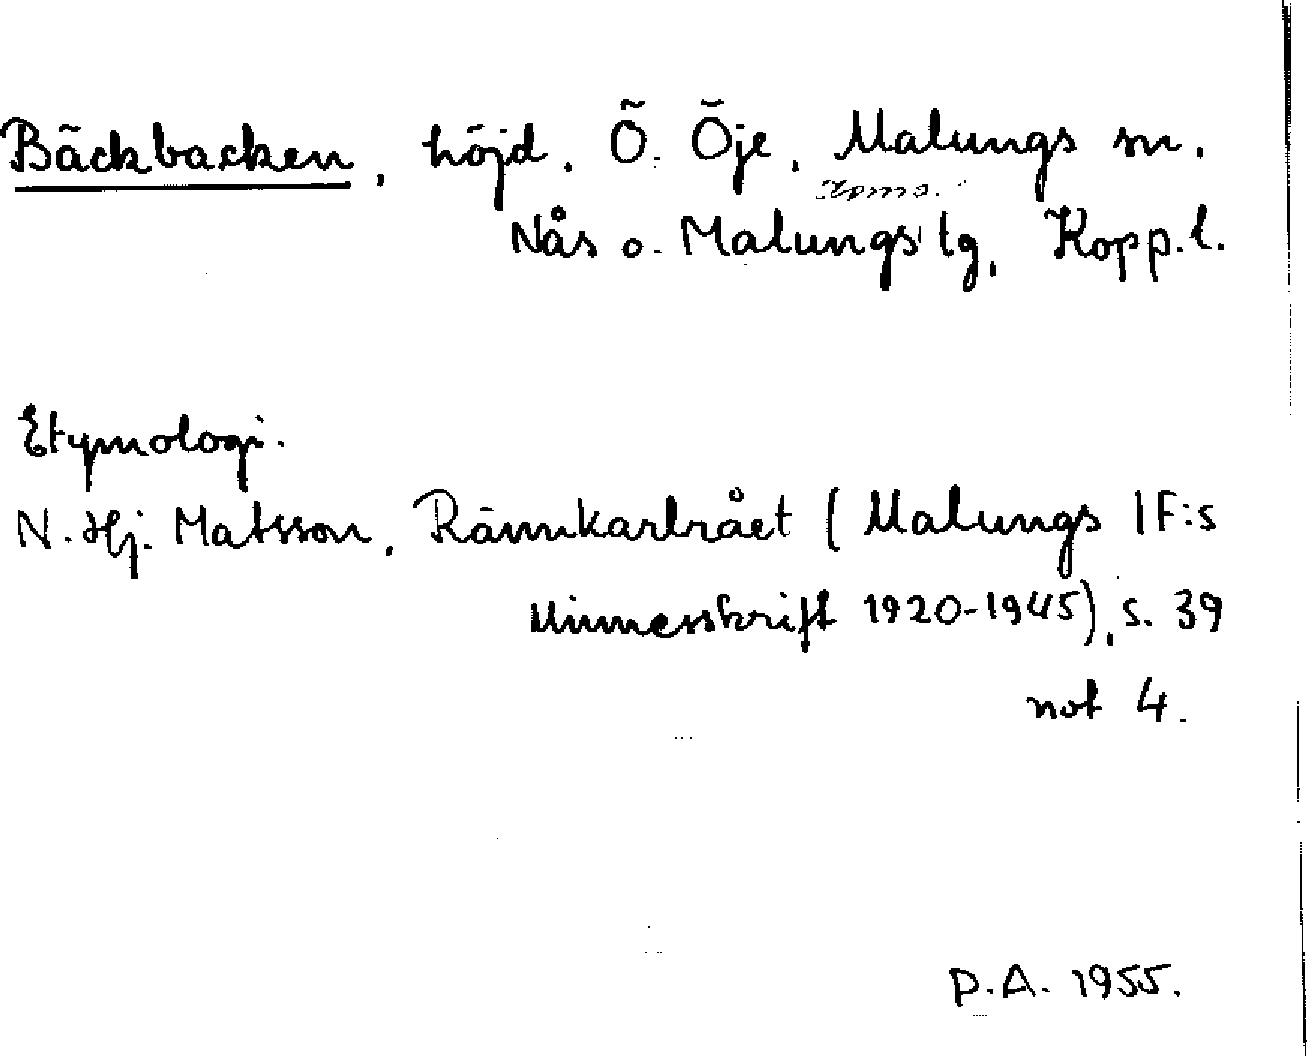 Bäckbacken, höjd, Ö. Öje, Malungs sn,
Nås o. Malungs tg, Kopp.l.
Etymologi.
N. Hj. Matsson, Rännkarlrået (Malungs IF:s
Minnesskrift 1920-1945), s. 39
not 4.
P.A. 1955.